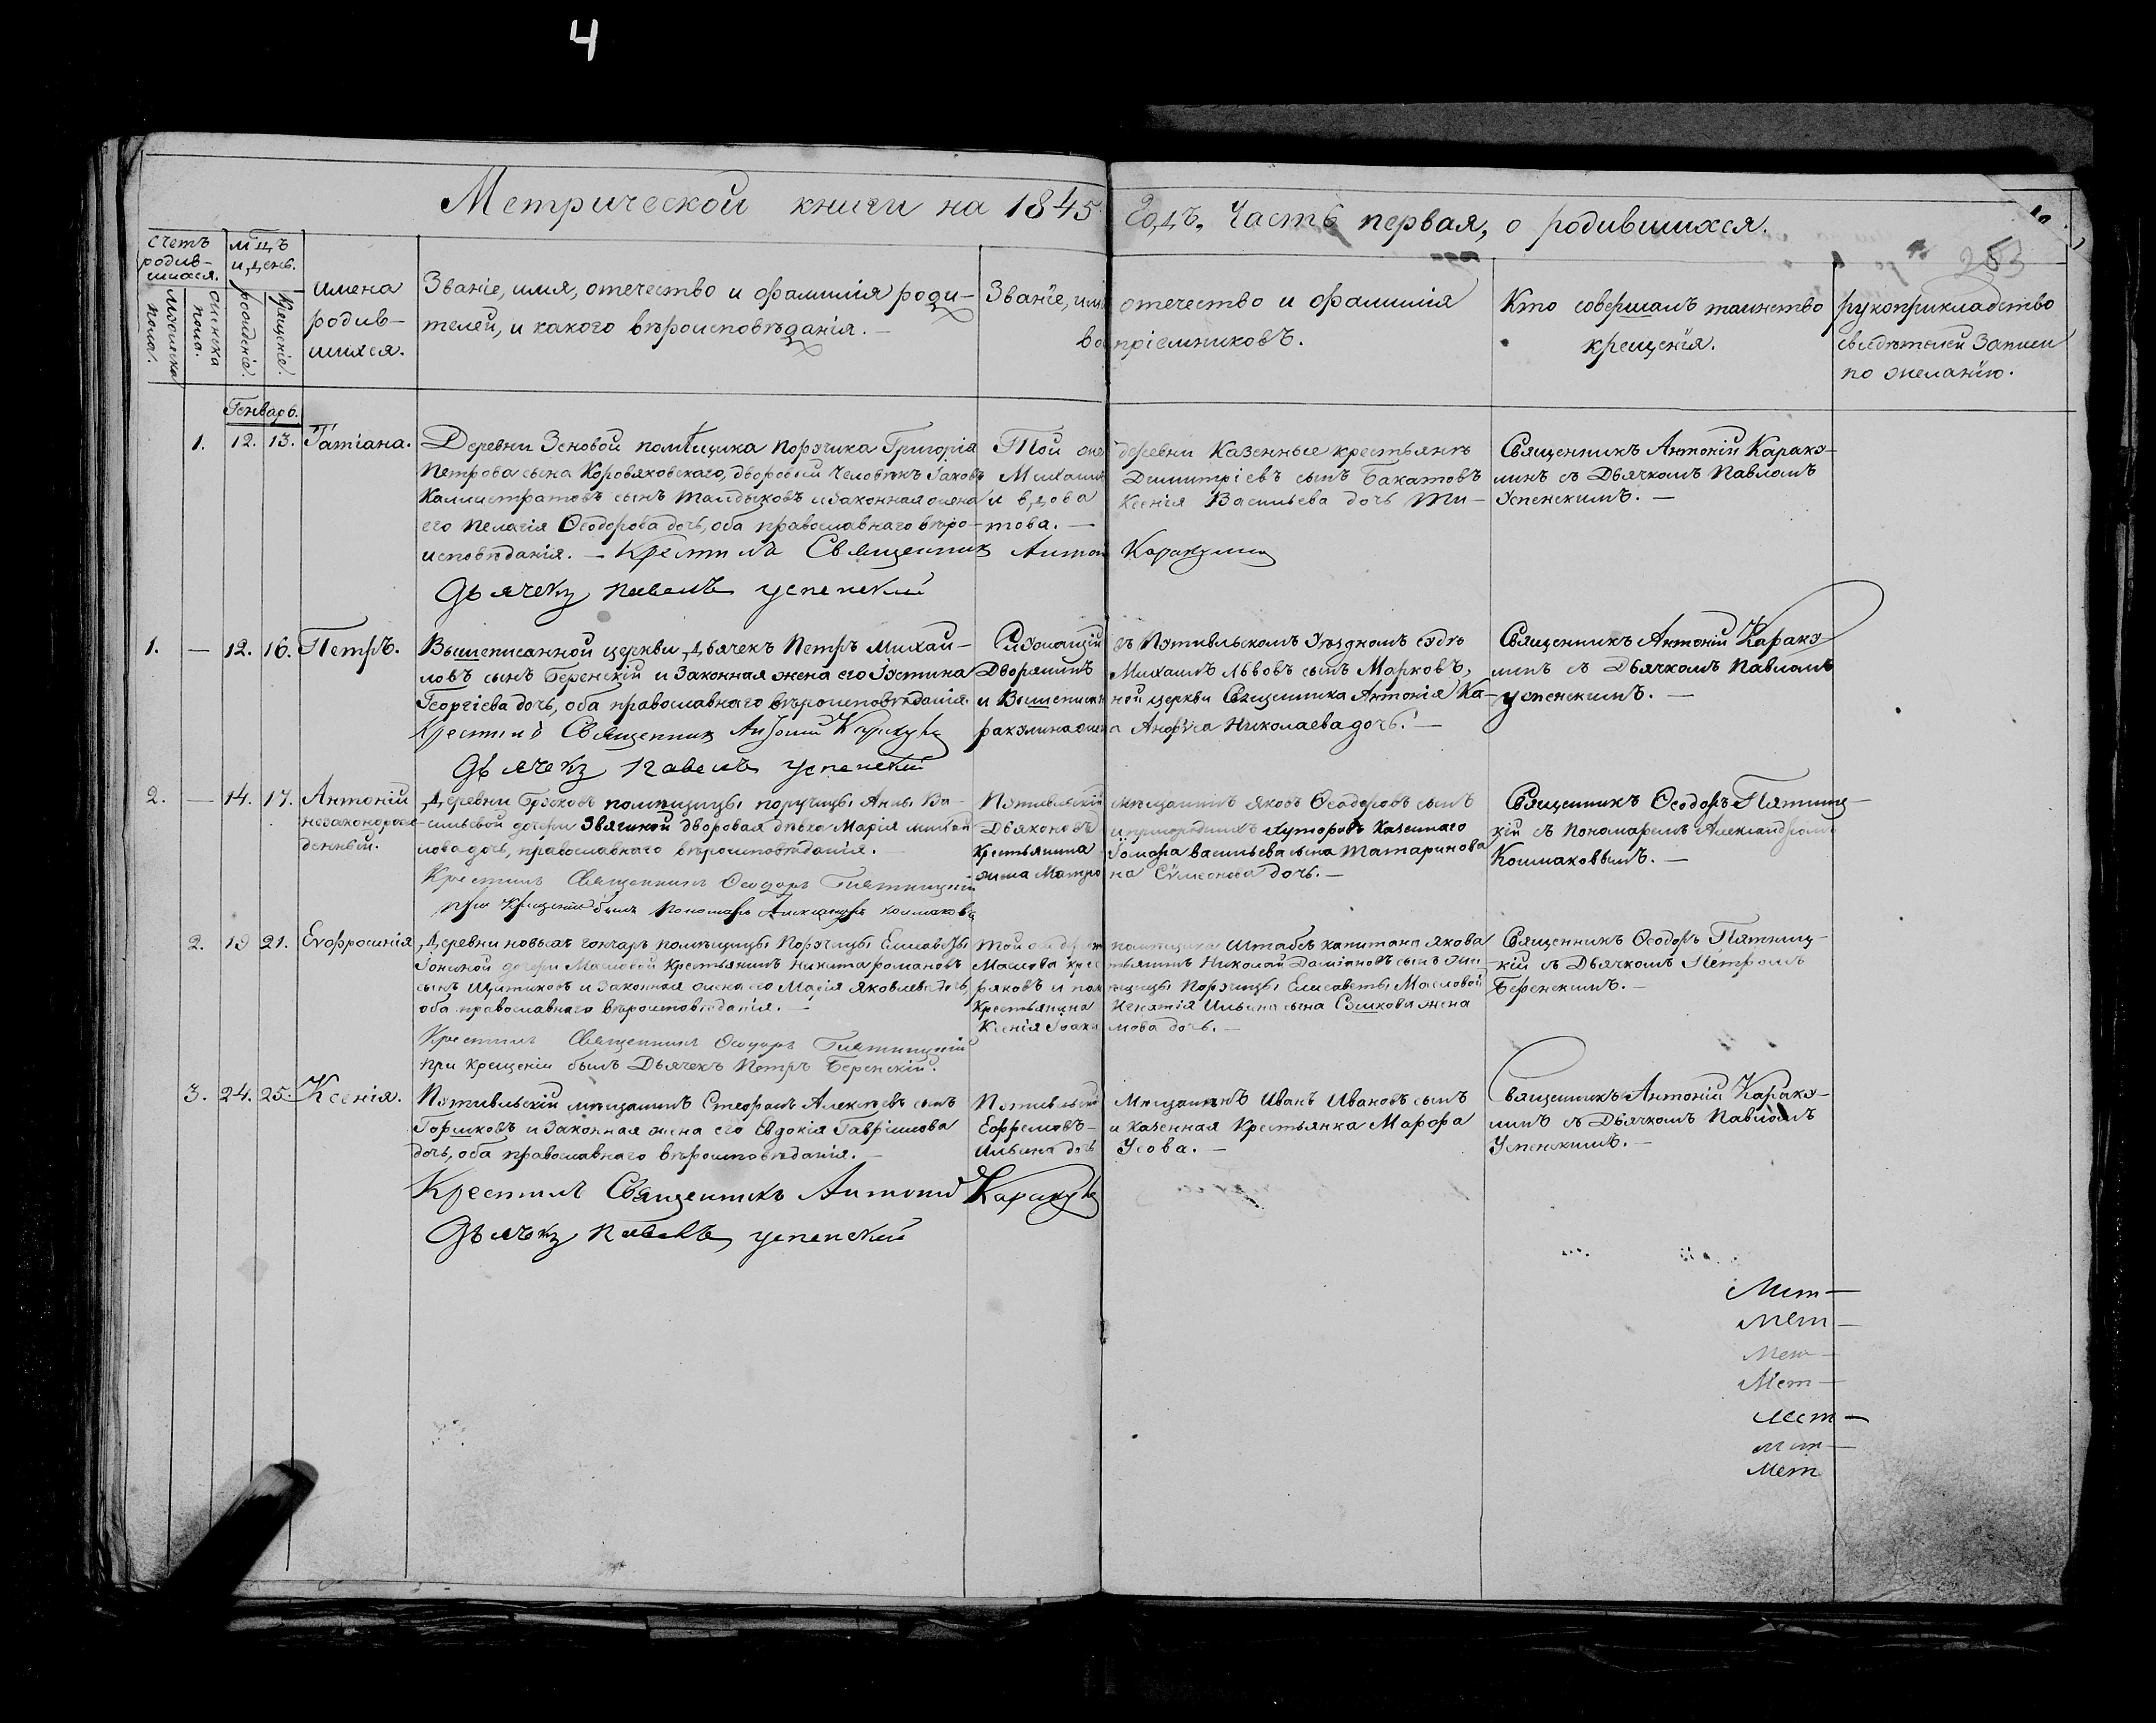 4
Метрической книги на 1845 Годъ. Часть первая, о родившихся.
253
счетъ родив-шихся.
мужеска пола.
женска пола.
мцъ и день.
рожденіе.
крещеніе.
имена
родив-
шихся.
Званіе, имя, отечество и фамилія роди-
телей, и какого вѣроисповѣданія.
Званіе, имя отечество и фамилія
воспріемниковъ.
Кто совершалъ таинство
крещенія.
рукоприкладство
свидѣтелей записи
по желанію.
Генварь.
1. 12. 13. Татіана.
Деревни Зеновой помѣщика Порэчика Григорія
Петрова сына Коровяковскаго, дворовый человѣкъ Іаковъ
Каллистратовъ сынъ Талдыковъ и законная жена
его Пелагія Ѳеодорова дочь, оба православнаго вѣро-
исповѣданія. — Крестилъ Священникъ Антон Каракулин
Дьячекъ Павелъ Успенский
Той же деревни Казенные крестьянъ
Михаилъ Димитріевъ сынъ Бакатовъ
и вдова Ксенія Васильева дочь Ти-
това. —
Священникъ Антоній Каракэ-
линъ съ Дьячкомъ Павломъ
Успенскимъ. —
1. — 12. 16. Петръ.
Вышеписанной церкви Дьячекъ Петръ Михаи-
ловъ сынъ Беренскій и Законная жена его Іэстина
Георгіева дочь, оба православнаго вѣроисповѣданія.
Крестилъ Священникъ Антоній Каракул
Дьячекъ Павелъ Успенскій
въ Пэтивльскомъ Уѣздномъ сэдѣ
Дворянинъ Михаилъ Львовъ сынъ Марковъ,
и Вышеписанной церкви Священника Антонія Ка-
ракэлина жена Анфіса Николаева дочь. —
Священникъ Антоній Каракэ-
линъ съ Дьячкомъ Павломъ
Успенскимъ. —
2. — 14. 17. Антоній
незаконорож-
денный.
Деревни Брэсковъ помѣщицы поручицы Анны Ва-
сильевой дочери Звягиной дворовая дѣвка Марія Михай-
лова дочь, православнаго вѣроисповѣданія. —
Крестилъ Священникъ Ѳеодоръ Пятницкій
при крещеніи былъ Пономарь Александръ Колмаковъ
Пэтивльскій мѣщанинъ Яковъ Ѳеодоровъ сынъ
Дьяконовъ и пригородныхъ хуторовъ казеннаго
Крестьянина Іоакова Васильева сына Татаринова
жена Матрона Сѵмеонова дочь. —
Священникъ Ѳеодоръ Пятниц-
кій съ Пономаремъ Александромъ
Колмаковымъ. —
2. 19 21. Евфросинія
Деревни новыхъ гончаръ помѣщицы Порэчицы Елисаветы
дочери Масловой Крестьянинъ Никита Романовъ
сынъ Щитиковъ и Законная жена его Марія Яковлева дочь,
оба православнаго вѣроисповѣданія. —
Крестилъ Священникъ Ѳеодоръ Пятницкій
при крещеніи былъ Дьячекъ Петръ Беренскій.
Той же деревни помѣщика Штабсъ капитана Якова
Маслова крестьянинъ Николай Даміановъ сынъ
ряковъ и помѣщицы Порэчицы Елисаветы Масловой
Крестьянина Игнатія Ильина сына Сэшкова жена
Ксенія Іоакимова дочь. —
Священникъ Ѳеодоръ Пятниц-
кій съ Дьячкомъ Петромъ
Беренскимъ. —
3. 24. 25. Ксенія.
Пэтивльскій мѣщанинъ Стефанъ Алексѣевъ сынъ
Горшковъ и Законная жена его Евдокія Гавріилова
дочь, оба православнаго вѣроисповѣданія. —
Крестилъ Священникъ Антоній Каракул
Дьячекъ Павелъ Успенский
Пэтивльскій Мѣщанинъ Иванъ Ивановъ сынъ
Ефремовъ — и казенная Крестьянка Марфа
Ильина дочь Усова. —
Священникъ Антоній Каракэ-
линъ съ Дьячкомъ Павломъ
Успенскимъ. —
Мет —
Мет —
Мет —
Мет —
Мет —
Мет —
Мет